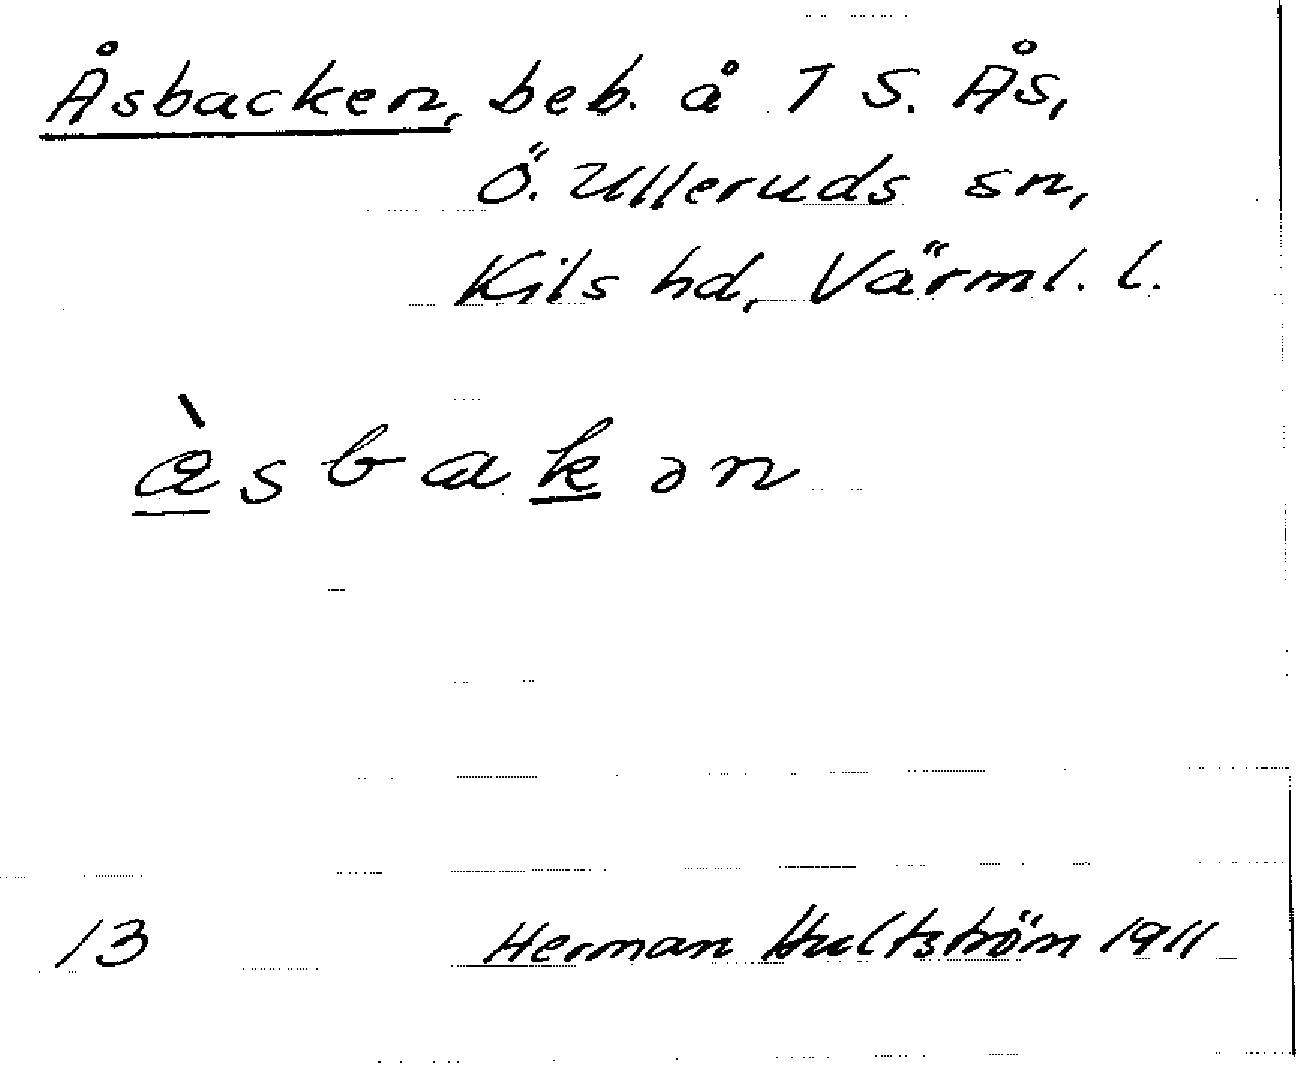 Åsbacken, beb. å 1 S. Ås,
Ö. Ulleruds sn,
Kils hd, Värml. l.
àsbakən
13 Herman Hultström 1911